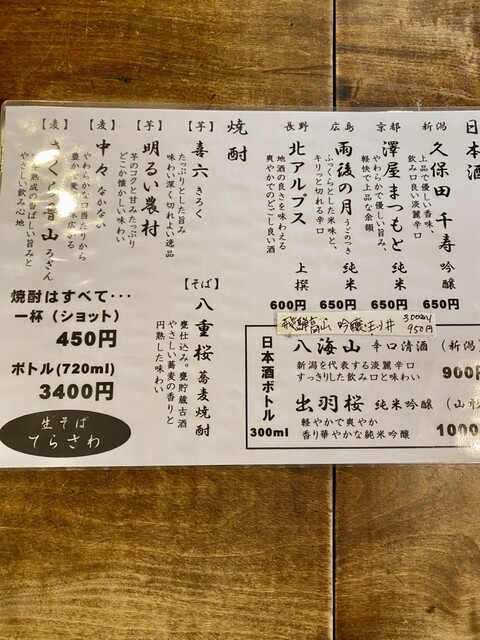 日本酒
新潟
久保田 千寿 吟醸
上品で優しい香味、
飲み口良い淡麗辛口
650円
京都
澤屋まつもと 純米
やわらかで優しい旨み、
軽快で上品な余韻
650円
広島
雨後の月 うごのつき 純米
ふっくらとした米味と、
キリッと切れる辛口
650円
長野
北アルプス 上撰
地酒の良さを味わえる
爽やかでのどごし良い酒
600円
飛騨高山 吟醸 300ml
950円
日本酒ボトル
300ml
八海山 辛口清酒 (新潟)
新潟を代表する淡麗辛口
すっきりした飲み口と味わい
900円
出羽桜 純米吟醸 (山形
軽やかで爽やか
香り華やかな純米吟醸
1000
焼酎
【芋】
喜六 きろく
たっぷりとした旨み
味わい深く切れよい逸品
【芋】
明るい農村
芋のコクと甘みたっぷり
どこか懐かしい味わい
【麦】
中々 なかなか
やわらかな口当たりから
豊かな麦の味広がる
【麦】
山 ろざん
熟成の香ばしい旨みと
やさしい飲み心地
【そば】
八重桜 蕎麦焼酎
甕仕込み。甕貯蔵古酒
やさしい蕎麦の香りと
円熟した味わい
焼酎はすべて・・・
一杯（ショット）
450円
ボトル(720ml)
3400円
生そば
てらさわ